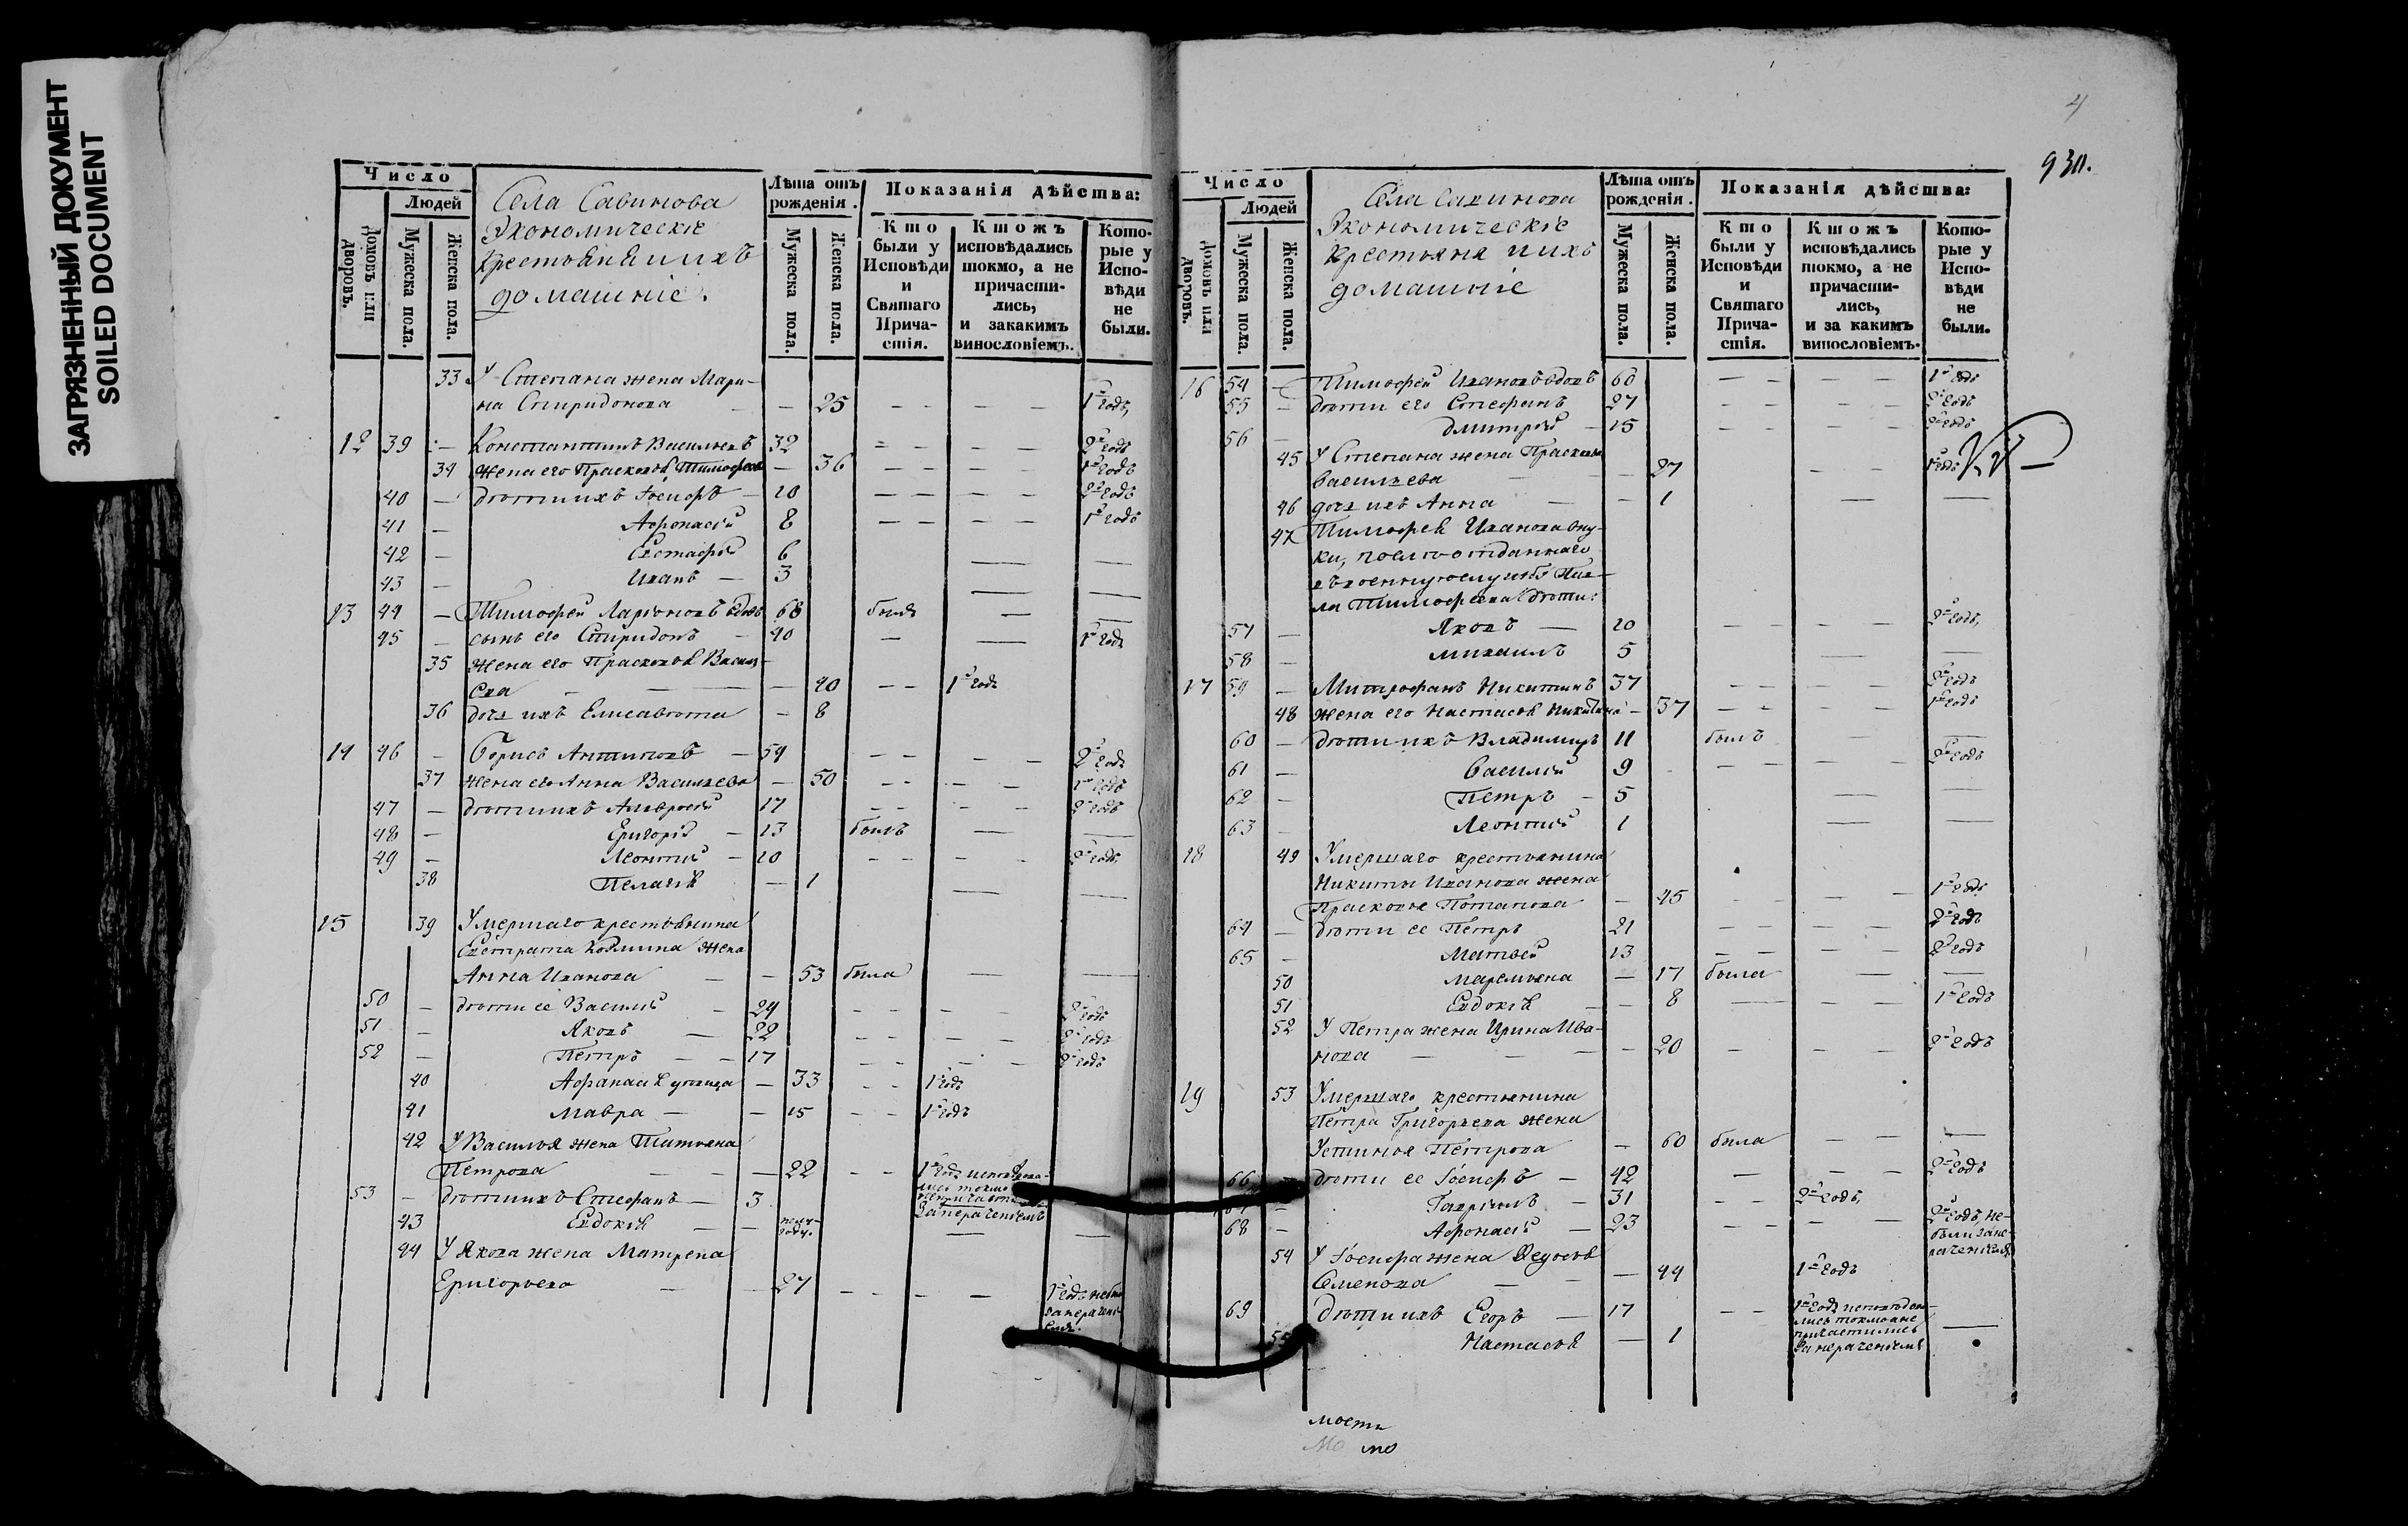 ЗАГРЯЗНЕННЫЙ ДОКУМЕНТ
SOILED DOCUMENT
Число
Людей
Домовъ или дворовъ.
Мужеска пола.
Женска пола.
Села Савинова
Экономическіе
крестьянѣ и ихъ
домашніе.
Лѣта отъ рожденія.
Мужеска пола.
Женска пола.
Показанія дѣйства:
Кто были у Исповѣди и Святаго Причастія.
Ктожъ исповѣдались токмо, а не причастились, и закакимъ винословіемъ.
Которые у Исповѣди не были.
33 У Степана жена Мари-
на Спиридонова — — 25 — — — — 1й годъ,
12 39 — Константинъ Васильевъ 32 — — — — 2й годъ
34 жена его Прасковья Тимофеева — 36 — — — — 1й годъ
40 — дѣти ихъ Іосифъ — 10 — — — — 2й годъ
41 — Афонасій 8 — — — — 1й годъ
42 — Евстафій 6 — —
43 — Иванъ — 3 — —
13 44 — Тимофей Ларіоновъ вдовъ 68 былъ — —
45 — сынъ его Спиридонъ — 40 — — 1й годъ
35 жена его Прасковья Василь-
ева — — — — 40 — — 1й годъ
36 дочь ихъ Елисавѣта — 8
14 46 — Борисъ Антиповъ — 54 — — — — 2й годъ
37 жена его Анна Васильева — 50 — — — — 1й годъ
47 — дѣти ихъ Амвросій 17 — — — — 2й годъ
48 — Григорій — 13 былъ — —
49 — Леонтій — 10 — — — — 2й годъ
38 Пелагѣя — 1 — —
15 39 Умершаго крестьянина
Евстрата Козмина жена
Анна Иванова — — 53 была — —
50 — дѣти ее Василій — 24 — — — — 2й годъ
51 — Яковъ — 22 — — — — 2й годъ
52 — Петръ — — 17 — — — — 2й годъ
40 Афанасья — 33 — — 1й годъ
41 Мавра — — 15 — — 1й годъ
42 У Василья жена Татьяна
Петрова — — — 22 — — 1й годъ исповѣдова-
лись токмо
53 — дѣти ихъ Стефанъ — 3
за нераченіемъ
43 Евдокія — — полу-
году. — —
44 У Якова жена Матрена
Григорьева — — 27 — — — — 1й годъ не бы
за нерачені
емъ.
4
930.
Число
Людей
Домовъ или дворовъ.
Мужеска пола.
Женска пола.
Села Савинова
Экономическіе
крестьяня и ихъ
домашніе
Лѣта отъ рожденія.
Мужеска пола.
Женска пола.
Показанія дѣйства:
Кто были у Исповѣди и Святаго Причастія.
Ктожъ исповѣдались токмо, а не причастились, и за какимъ винословіемъ.
Которые у Исповѣди не были.
16 54 — Тимофей Ивановъ вдовъ 60 — — — — 1й годъ
55 — дѣти его Стефанъ 27 — — — — 2й годъ
56 — Дмитрій — 15 — — — — 2й годъ
45 У Степана жена Прасковья
Васильева — — 27 — — 1й годъ
46 дочь ихъ Анна — — 1 — —
47 Тимофея Иванова вну-
ки, послѣ отданнаго
въ военную службу Пав-
ла Тимофеева дѣти:
57 — Яковъ — 10 — — — — 2й годъ,
58 — Михаилъ 5 — —
17 59 — Митрофанъ Никитинъ 37 — — — — 2й годъ
48 жена его Настасья Никитина — 37 — — — — 1й годъ
60 — дѣти ихъ Владимиръ 11 былъ — —
61 — Василій 9 — — — — 2й годъ
62 — Петръ — 5 — —
63 — Леонтій 1 — —
18 49 Умершаго крестьянина
Никиты Иванова жена
Прасковья Потапова — 45 — — — — 1й годъ
64 — дѣти ее Петръ 21 — — — — 2й годъ
65 — Матвей 13 — — — — 2й годъ
50 Маремьяна — 17 была — —
51 Евдокія — — 8 — — — 1й годъ
52 У Петра жена Ирина Ива-
нова — — — — 20 — — — 2й годъ
19 53 Умершаго крестьянина
Петра Григорьева жена
Устинья Петрова — 60 была — — —
66 — дѣти ее Іосифъ — 42 — — — 2й годъ
Гаврилъ — 31 — — 2й годъ,
68 — Афонасій — 23 — — — — 2й годъ, не
были за не-
раченіемъ
54 У Іосифа жена Федосья
Семенова — — — 44 1й годъ
69 дѣти ихъ Егоръ — 17 — — 1й годъ исповѣдова-
лись токмо а не
причастились
за нераченіемъ
55 Настасья — 1 —